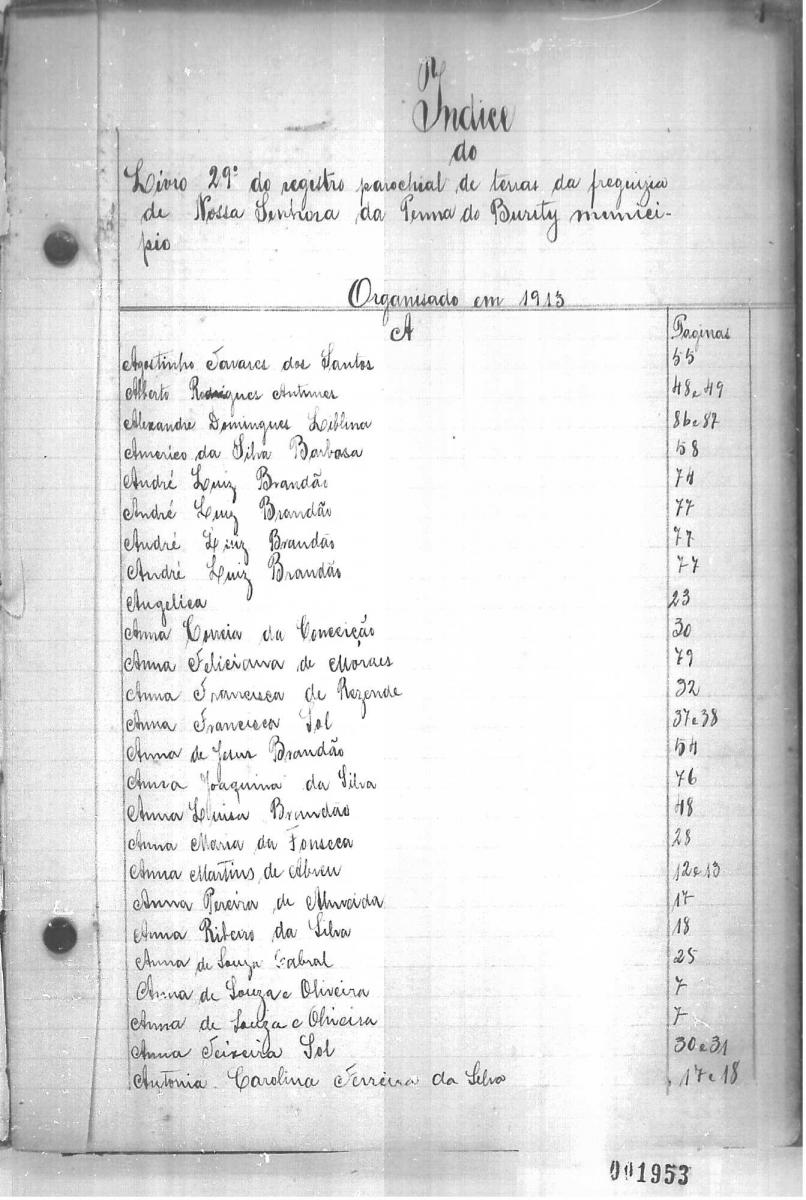 Indice
do
Livro 29º do registro parochial de terras da freguizia
de Nossa Senhora da Penna do Burity munici-
pio
Organisado em 1913
A Paginas
Agostinho Tavares dos Santos 55
Alberto Rodrigues Antunes 48 e 49
Alexandre Domingues 86 e 87
Americo da Silva Barbosa 58
André Luiz Brandão 74
André Luiz Brandão 77
André Luiz Brandão 77
André Luiz Brandão 77
Angelica 23
Anna Correia da Conceição 30
Anna Feliciana de Moraes 79
Anna Francisca de Rezende 32
Anna Francisca Sol 37 e 38
Anna de Jesus Brandão 54
Anna Joaquina da Silva 76
Anna Luisa Brandão 48
Anna Maria da Fonseca 28
Anna Martins de Abreu 12 e 13
Anna Pereira de Almeida 17
Anna Ribeiro da Silva 18
Anna de Souza Cabral 25
Anna de Souza e Oliveira 7
Anna de Souza e Oliveira 7
Anna Teixeira Sol 30 e 31
Antonia Carolina Ferreira da Silva 17 e 18
001953